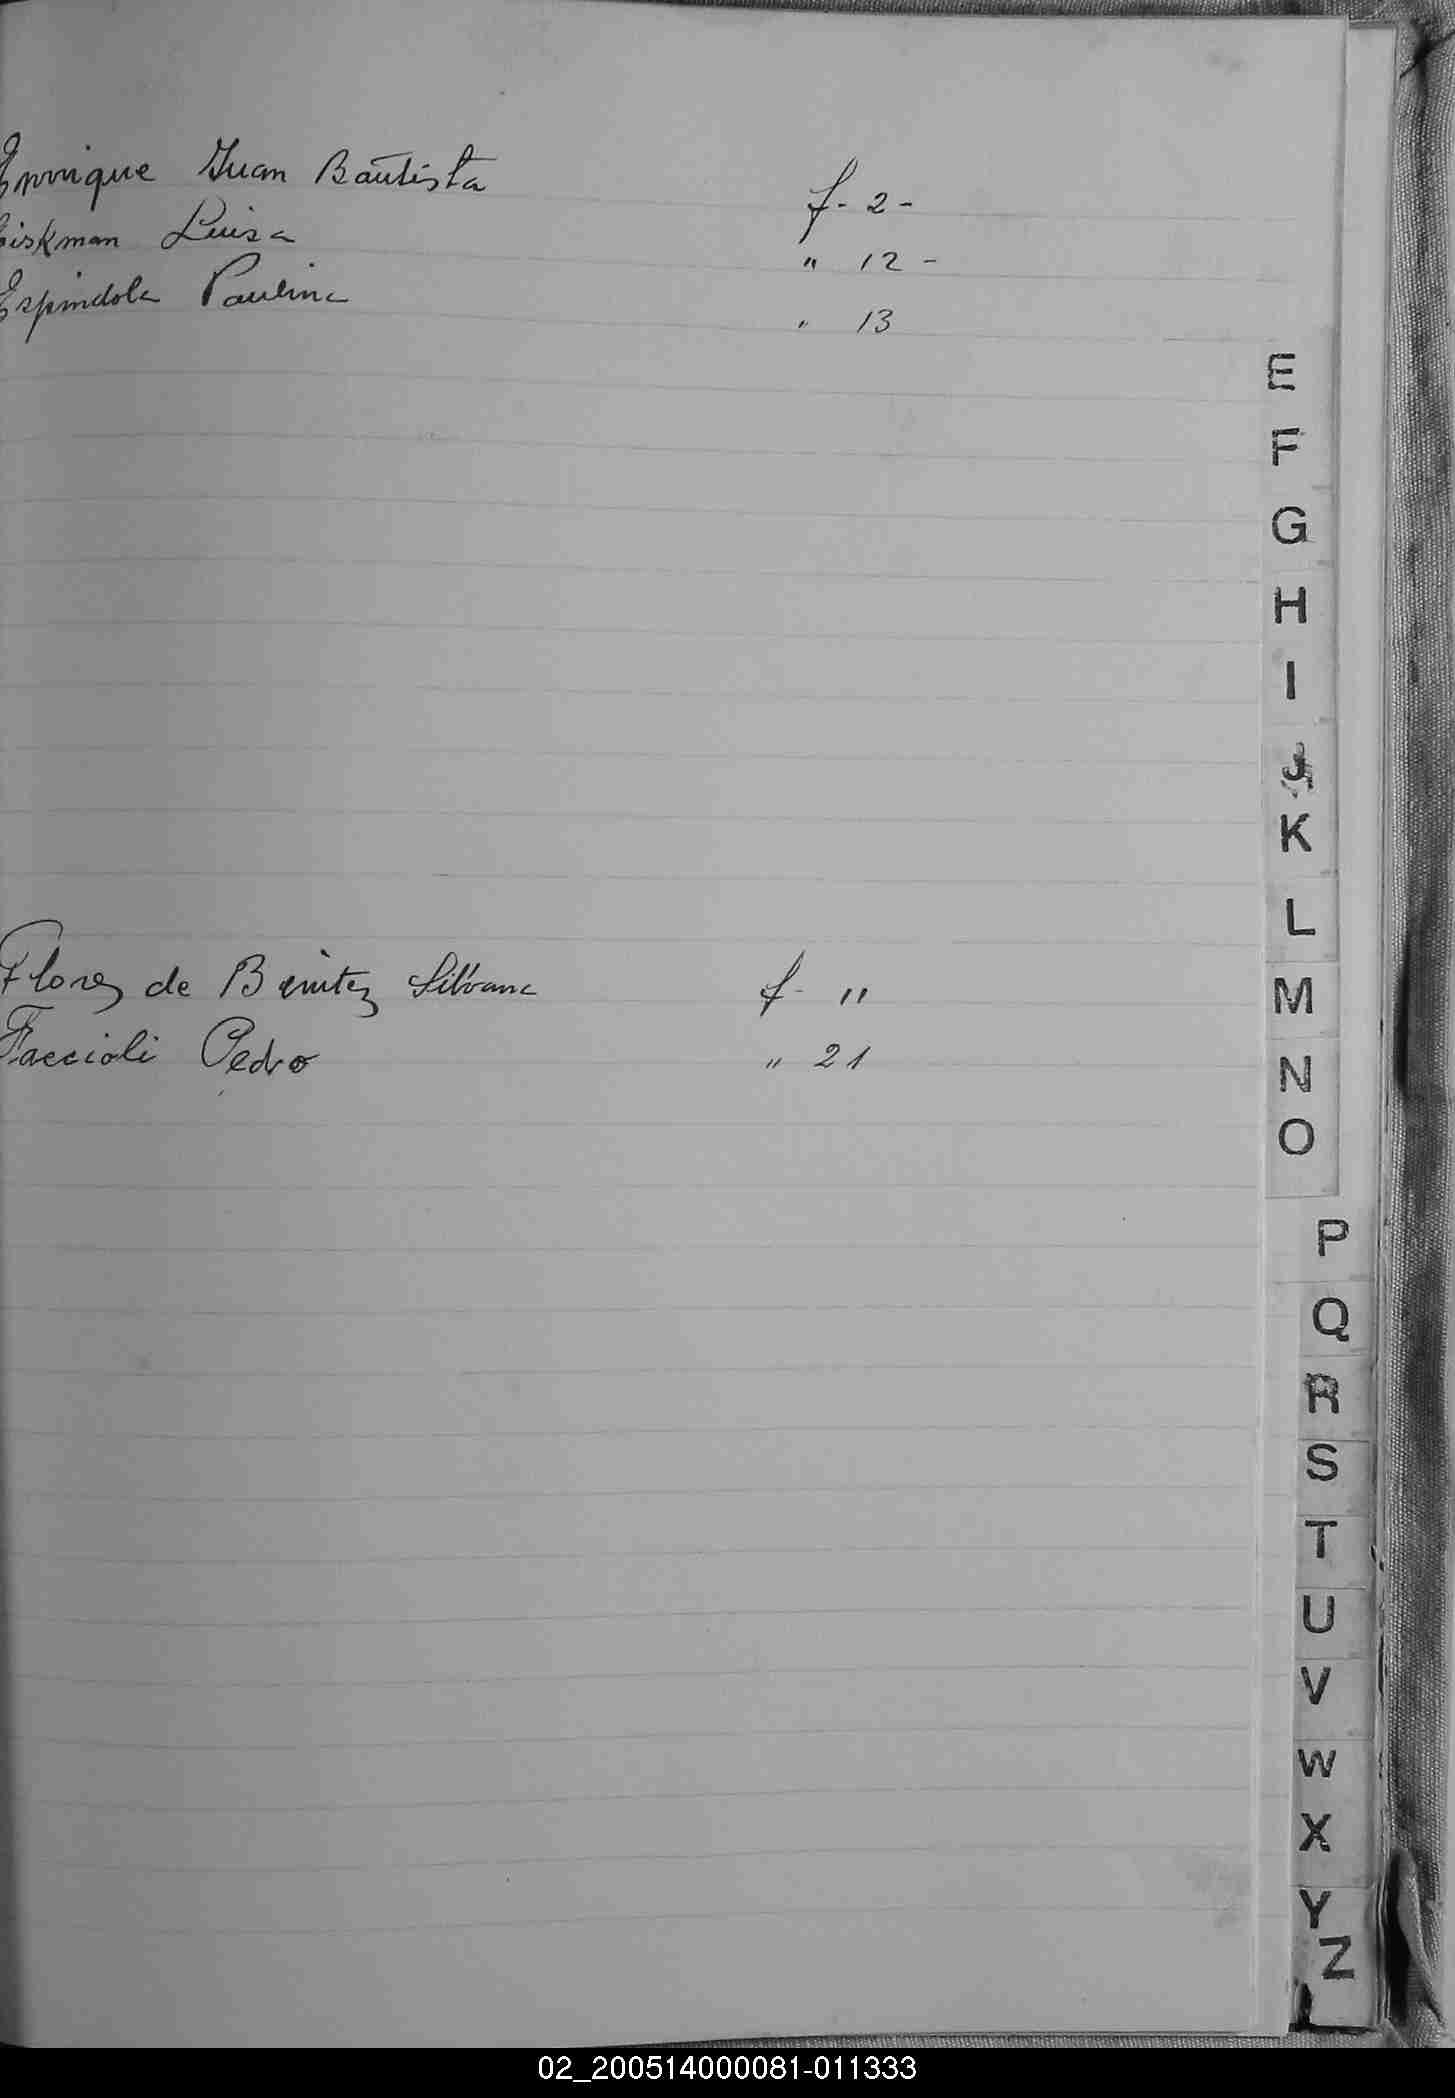 Enrrique Juan Bautista f- 2 -
Eiskman Luisa " 12 -
Espindola Paulina " 13
E
F
G
H
I
J
K
L
Flores de Benitez Silvana f- 11
M
Faccioli Pedro " 21
N
O
P
Q
R
S
T
U
V
W
X
Y
Z
02_200514000081-011333